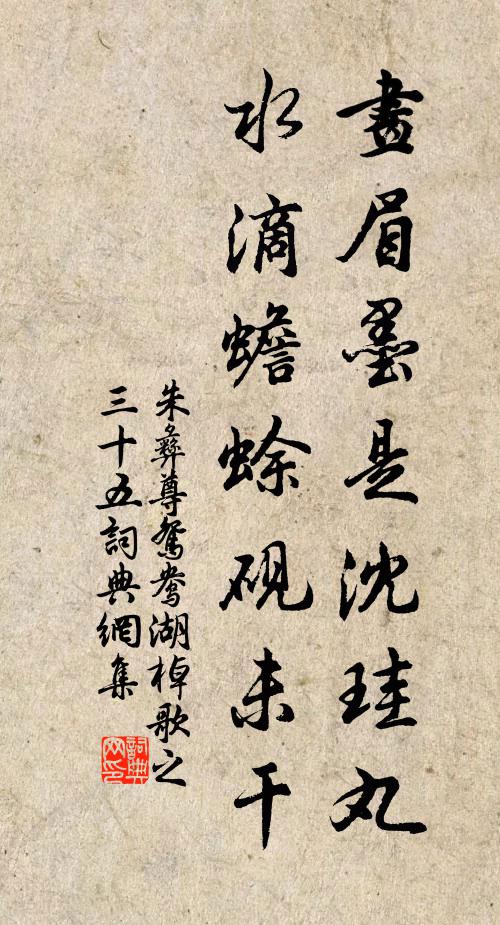 畫眉墨是沈珪丸
水滴蟾蜍硯未干
朱彝尊鴛鴦湖棹歌之
三十五詞典網集
詞典网印